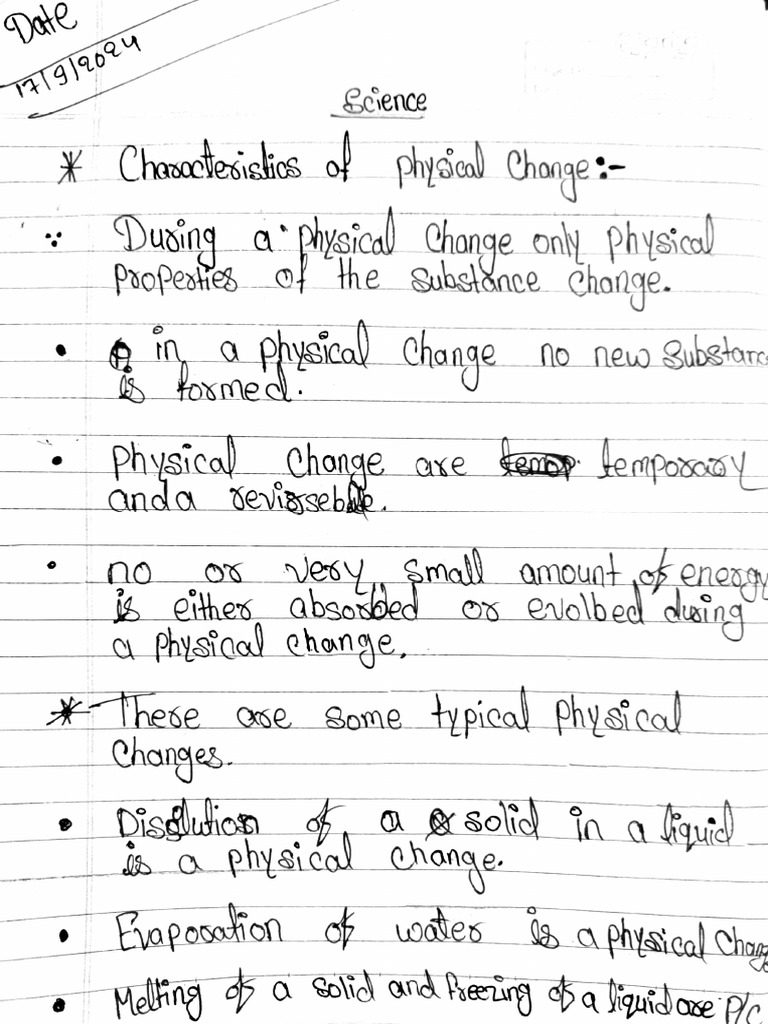 Date
17/9/2024
Science
* Characteristics of physical Change:-
During a physical Change only physical
properties of the substance change.
• in a physical change no new Substanc
is formed.
• Physical Change are temporary
and a
• no or very small amount of energy
is either absorbed or evolbed during
a physical change.
* There are some typical physical
Changes.
• Dissilution of a solid in a liquid
is a physical change.
• Evaporation of water is a physical Chang
• Melting of a solid and freezing of a liquid are P/C